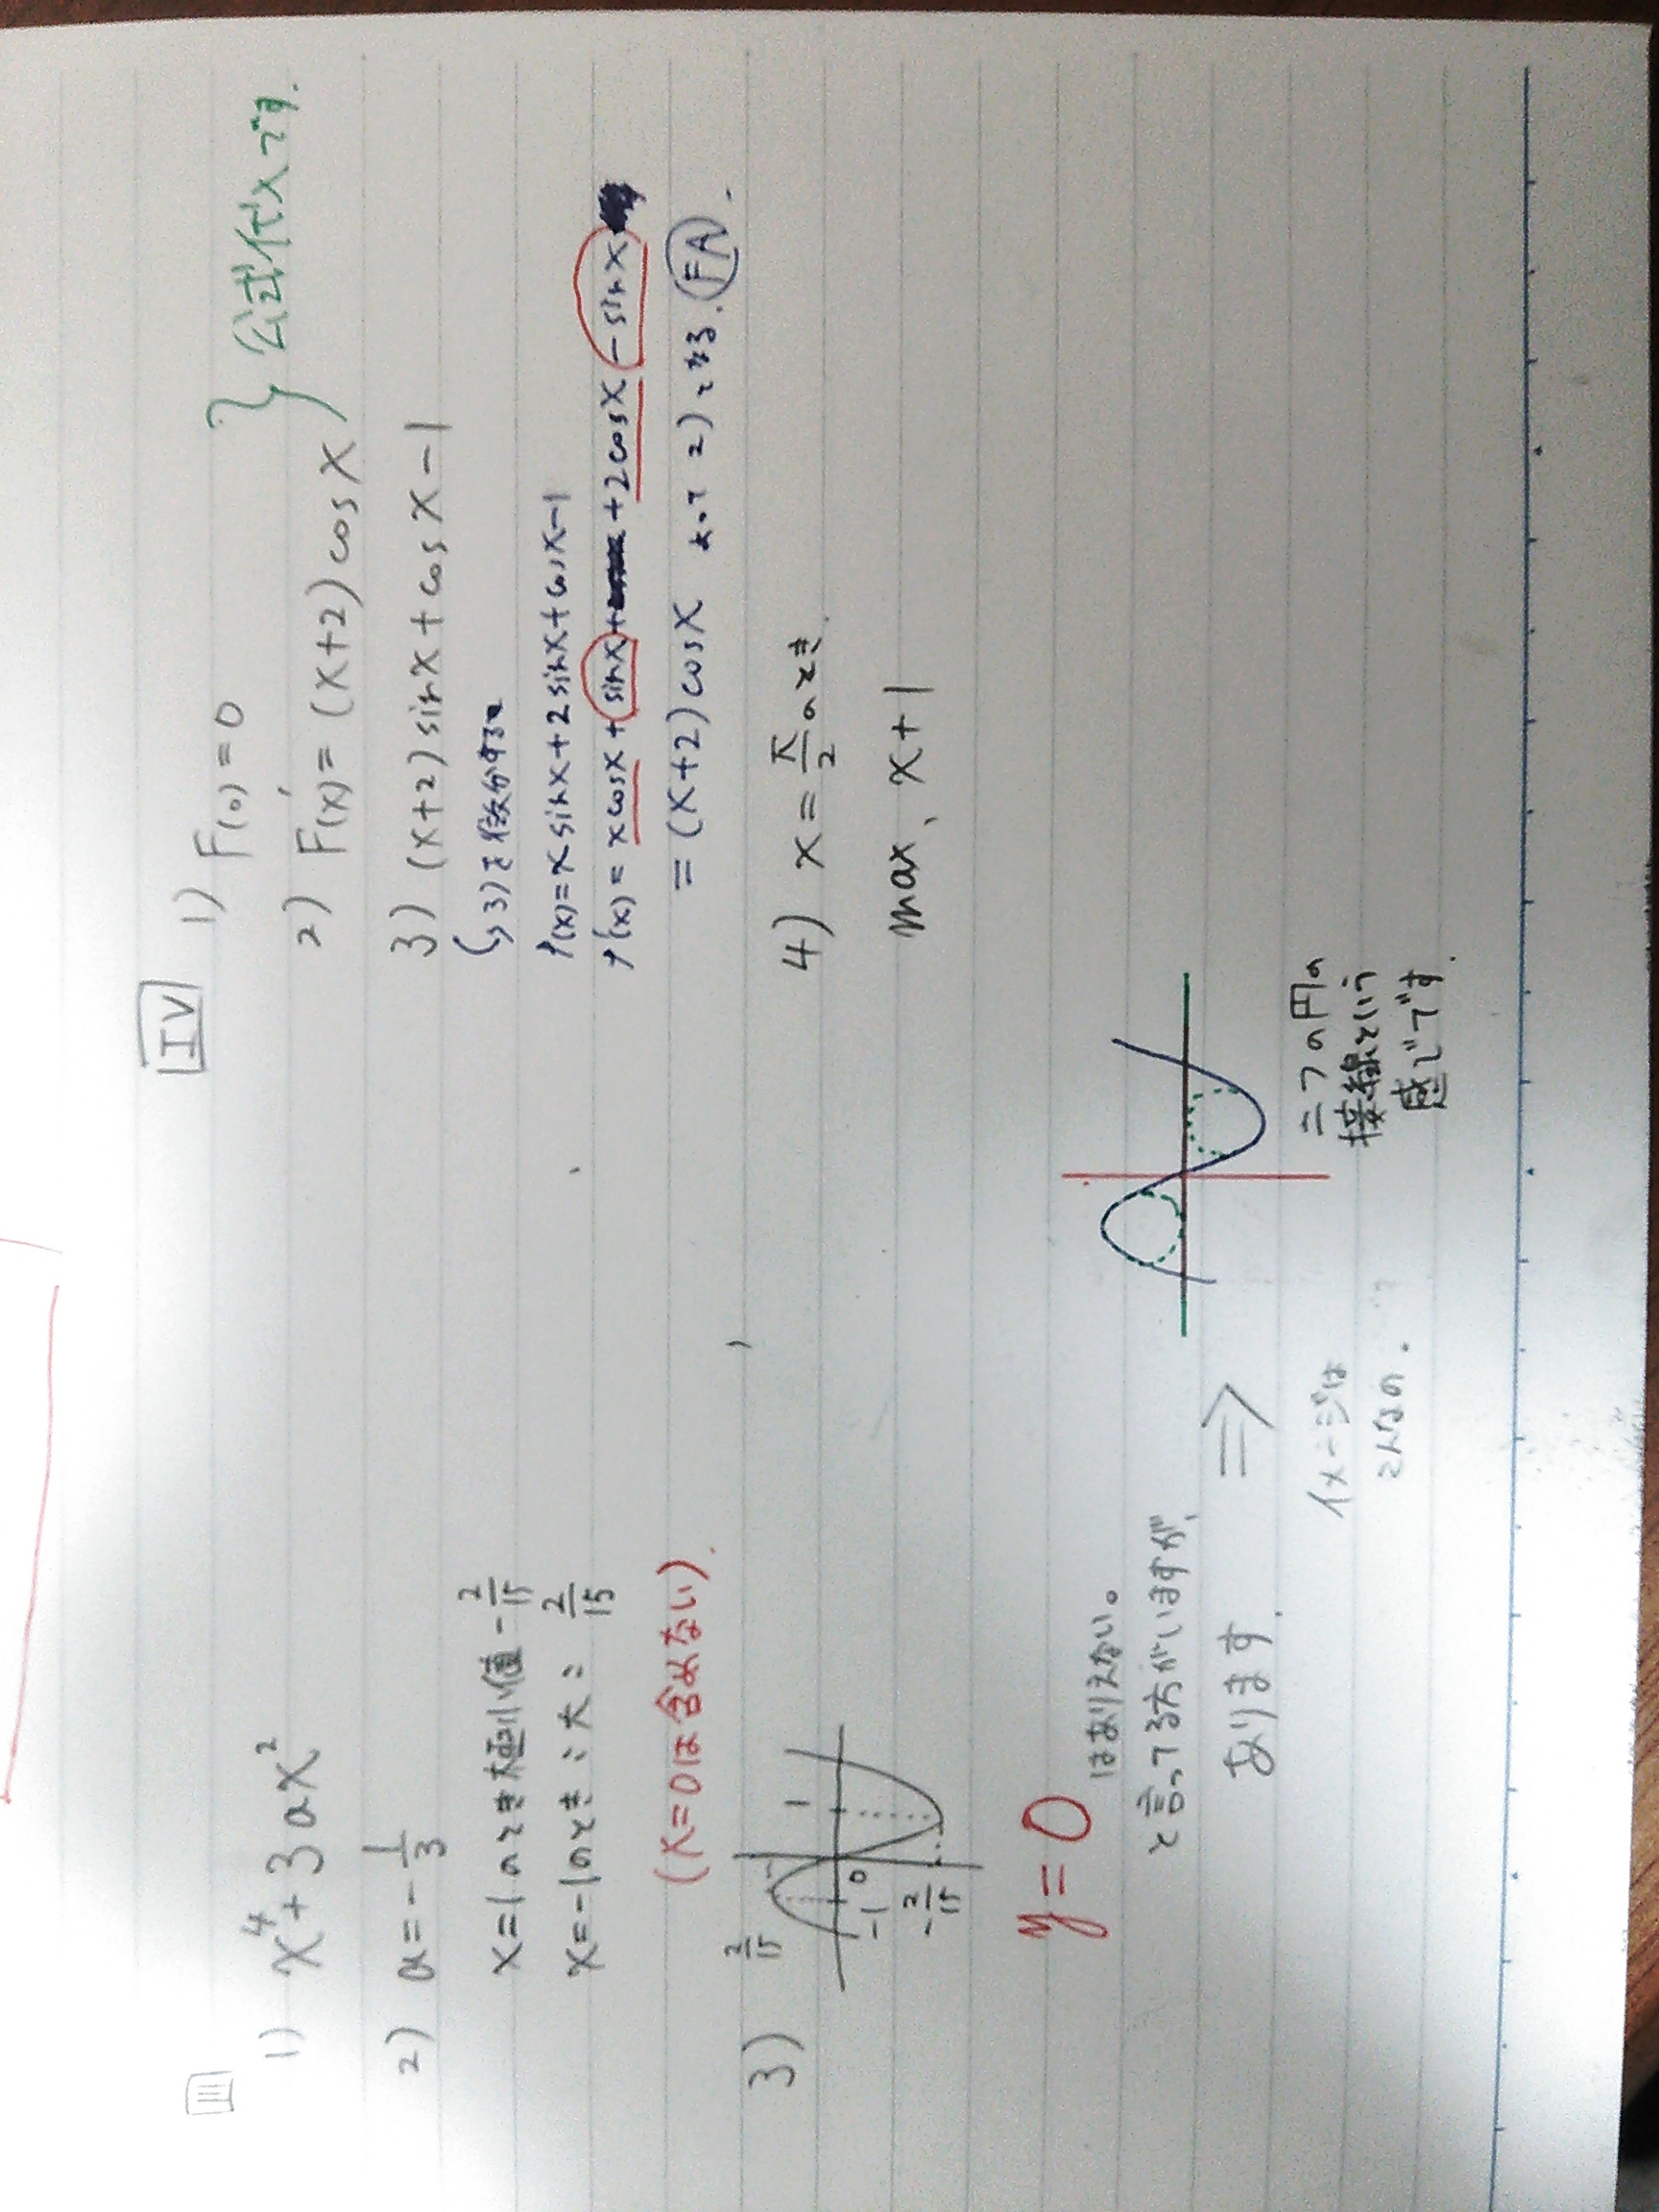 III
1) x⁴+3ax²
2) a=-1/3
x=1のとき極小値-2/15
x=-1のとき〃大〃2/15
(x=0は含めない).
3)
2/15
-1 0 1
-2/15
y=0
はありえない。
と言ってる方がいますが、
あります.
⇒
イメージは
こんなの.
二つの円の
接線という
感じです.
IV
1) F(0)=0
2) F'(x)=(x+2)cosx
} 公式代入です.
3) (x+2)sinx+cosx-1
3)を微分すると
f(x)=xsinx+2sinx+cosx-1
f'(x)=xcosx+sinx+2cosx-sinx
=(x+2)cosx よって2)となる. FA.
4) x=π/2のとき.
max、x+1